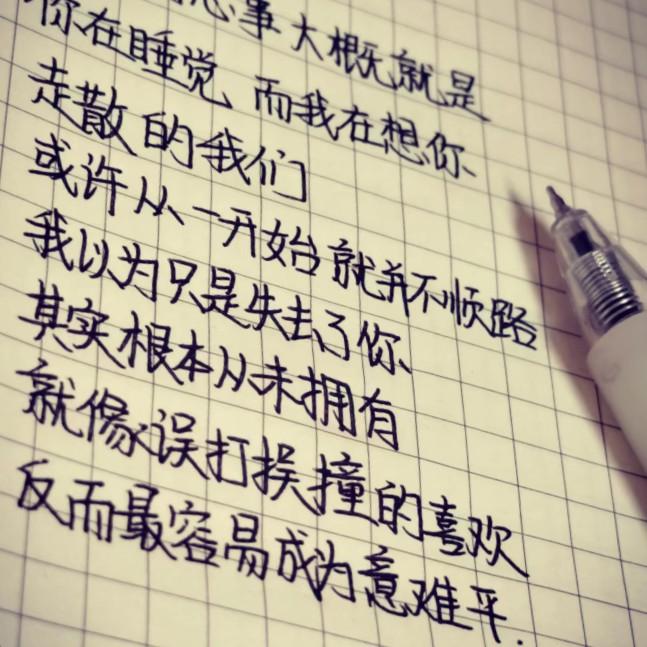 事大概就是
你在睡觉 而我在想你
走散的我们
或许从一开始就并不顺路
我以为只是失去了你
其实根本从未拥有
就像误打误撞的喜欢
反而最容易成为意难平.